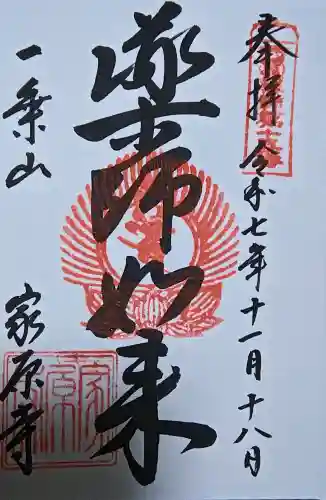 奉拝 令和七年十一月十八日
薬師如来
一乗山 家原寺